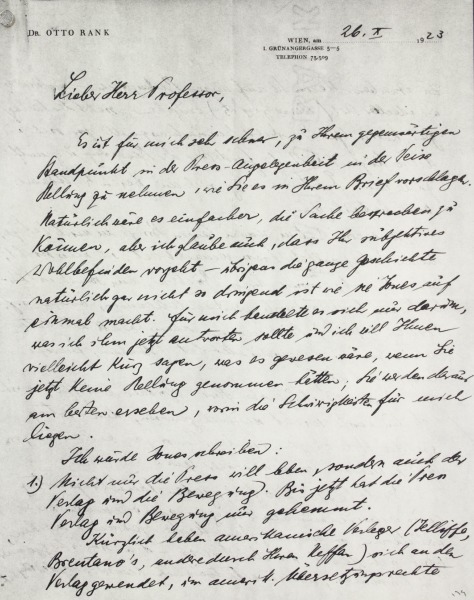 DR. OTTO RANK
WIEN, am 26. X 1923
I. GRÜNANGERGASSE 3-5
TELEPHON 75-509
Lieber Herr Professor,
Es ist für mich sehr schwer, zu Ihrem gegenwärtigen
Standpunkt in der Press-Angelegenheit in der Weise
Stellung zu nehmen, wie Sie es in Ihrem Brief vorschlagen.
Natürlich wäre es einfacher, die Sache besprechen zu
können, aber ich glaube auch, dass Ihr subjektives
Wohlbefinden vorgeht – übrigens die ganze Geschichte
natürlich gar nicht so dringend ist wie sie Jones auf
einmal macht. Für mich handelte es sich nur darum,
was ich ihm jetzt antworten sollte und ich will Ihnen
vielleicht kurz sagen, was es gewesen wäre, wenn Sie
jetzt keine Stellung genommen hätten; Sie werden daraus
am besten ersehen, worin die Schwierigkeiten für mich
liegen.
Ich würde Jones schreiben:
1.) Nicht nur die Press will leben, sondern auch der
Verlag und die Bewegung. Bis jetzt hat die Press
Verlag und Bewegung nur gehemmt.
Kürzlich haben amerikanische Verleger (Jelliffe,
Brentano's, andere durch Ihren Neffen) sich an den
Verlag gewendet, um amerik. Übersetzungsrechte